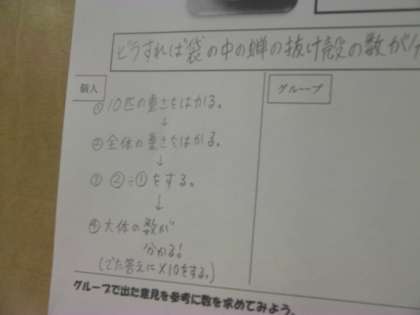 どうすれば袋の中の蝉の抜け殻の数が
個人
グループ
①10匹の重さをはかる。
↓
②全体の重さをはかる。
↓
③ ②÷①をする。
↓
④大体の数が
分かる!
(でた答えに×10をする。)
グループで出た意見を参考に数を求めてみよう。